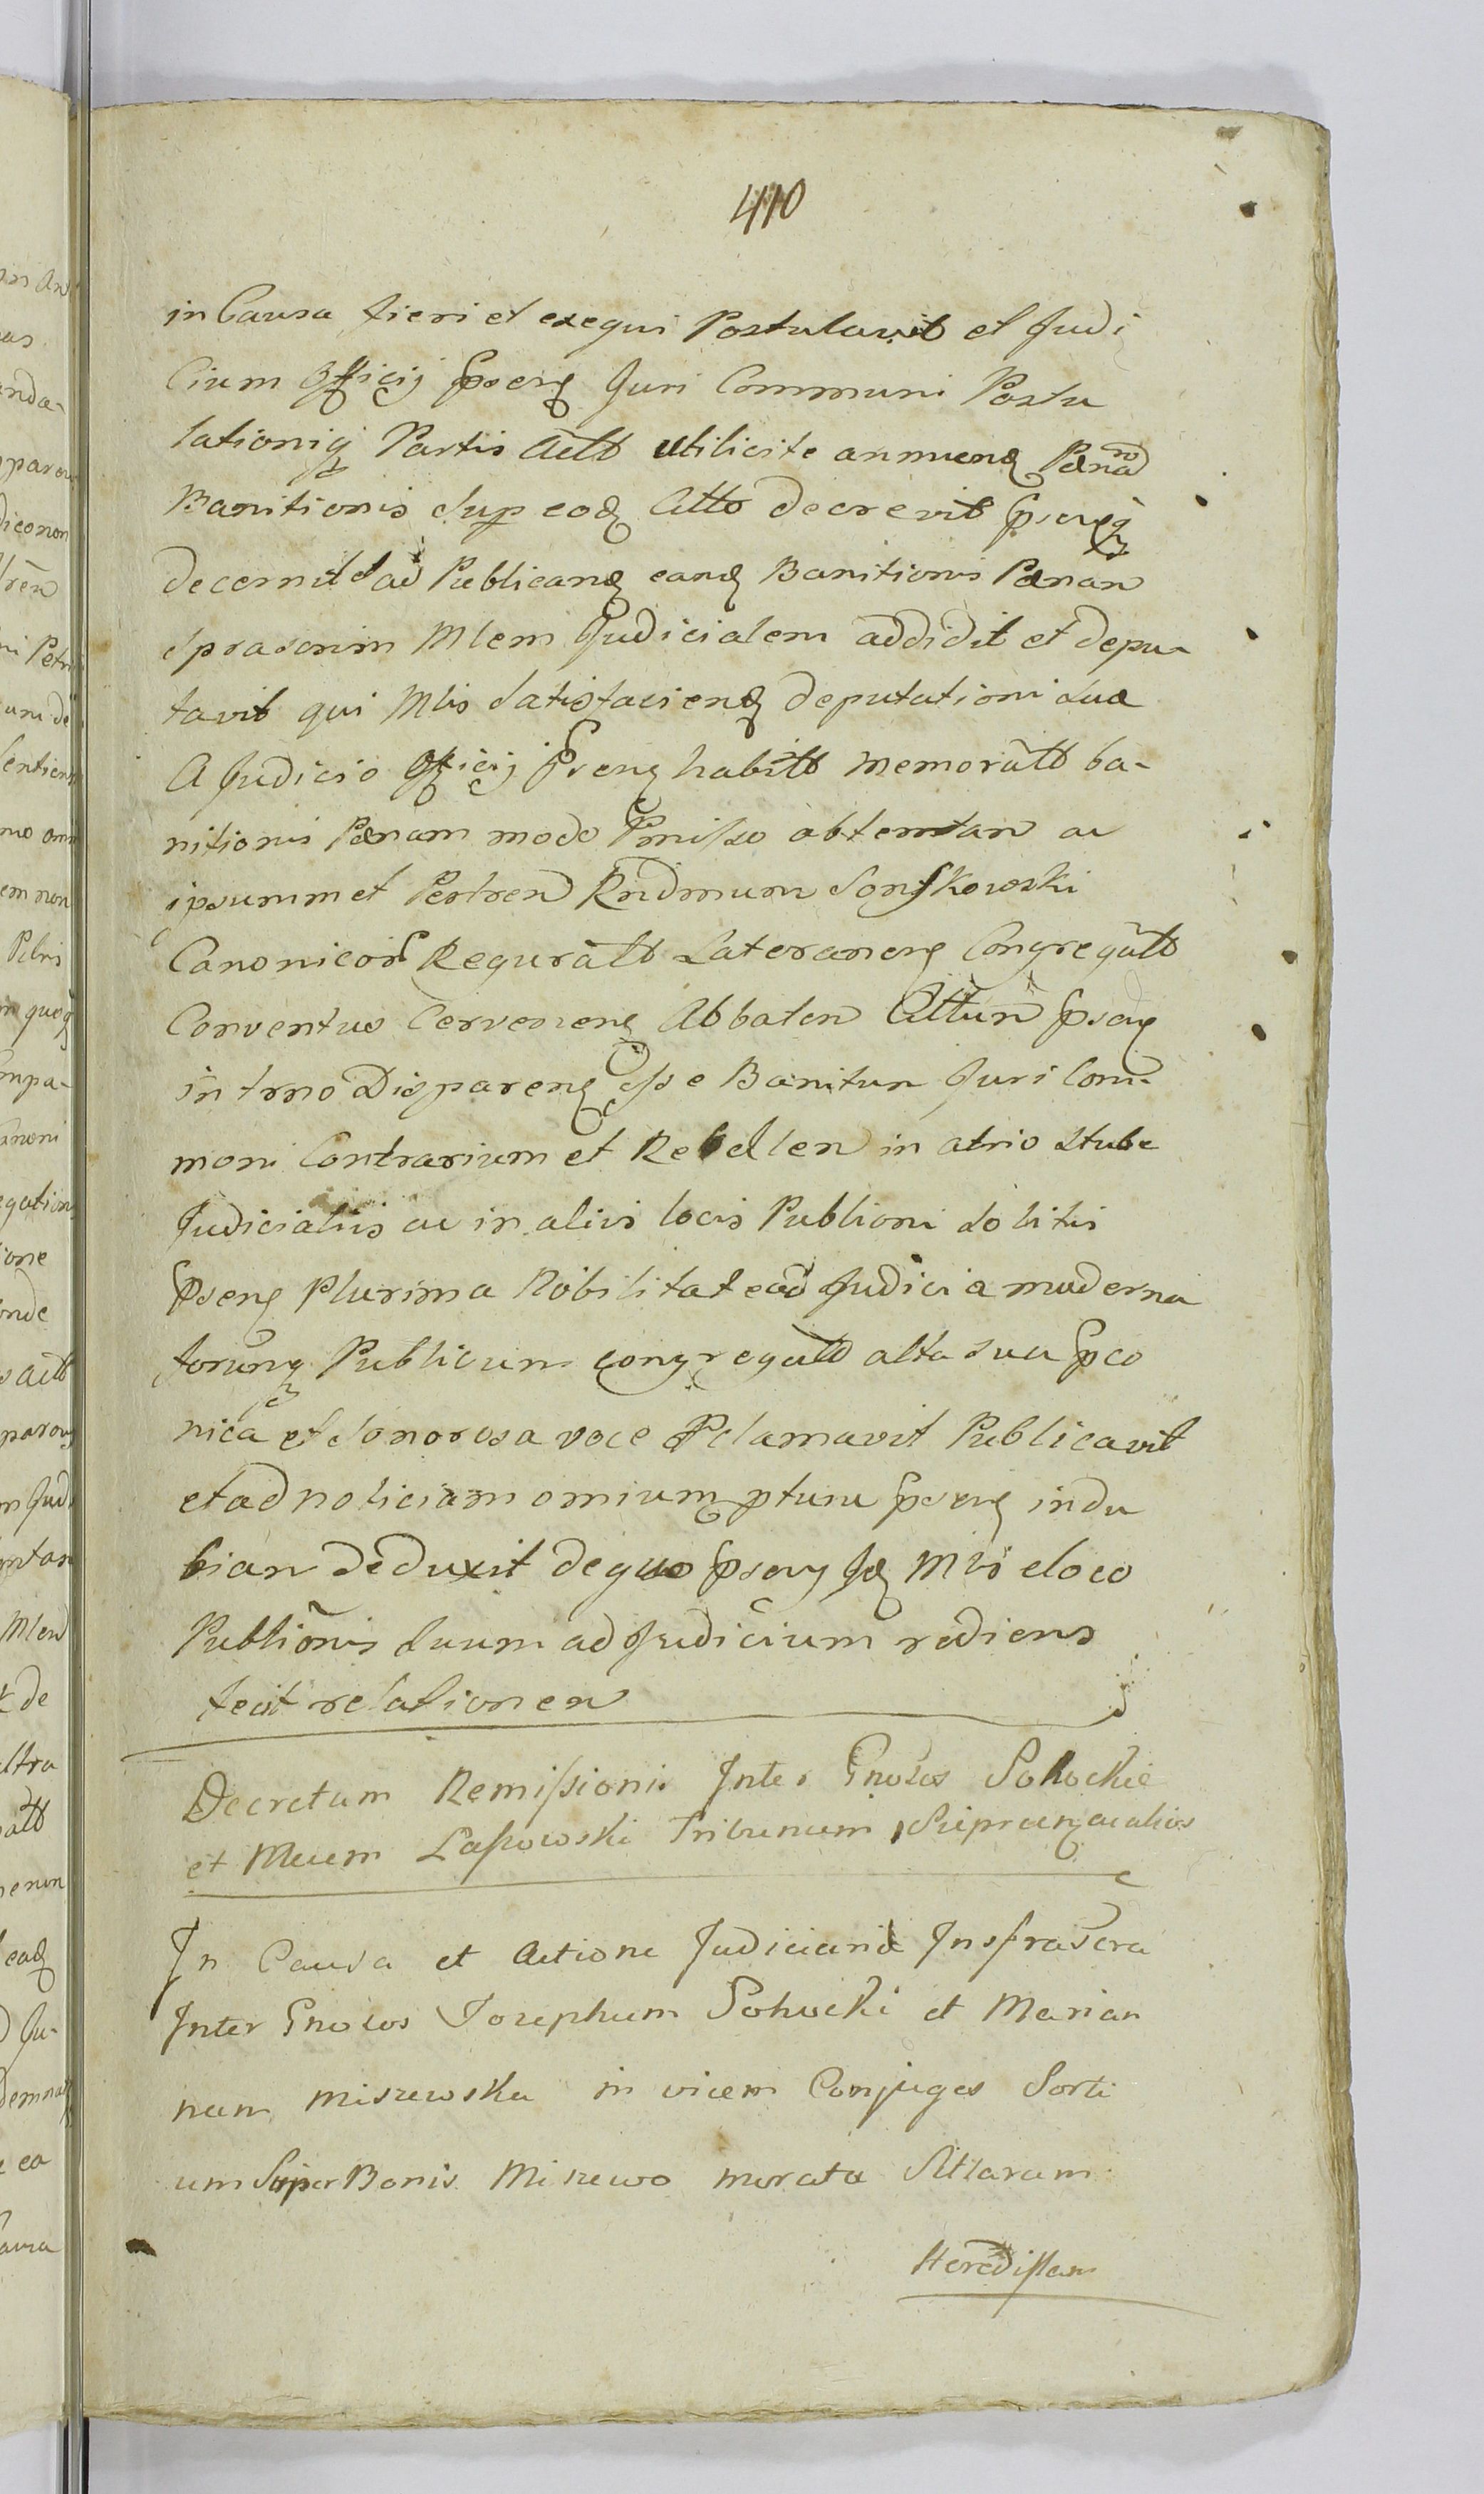 410
in Causa fieri et exequi Postulavit et Judi
cium Officij Pseng Juri Communi Postu
lationiq Partis Actt utilicite annueng Pænā
Banitionis Sup eod Atto decrevit psenq
decernit et ad Publicand eand Banitionis Pænam
Mlem Judicialem addidit et depu-
tavit qui Mlis Satisfaciend deputationi Suæ
A Judicio Officij Pseng habitt memoratt ba-
nitionis Pænam modo Pmisso obtentam ac
ipsummet Perhrend Rndmum
Canonicor Regūratt Lateraneng Congregatt
Conventus Cerveneng Abbatem Attum pseng
in trno Dispareng esse Banitum Juri Com-
moni Contrarium et Rebellem in atrio Stubæ
Judicialis ac in aliis locis Publioni Solitis
Pseng Plurima Nobilitate ad Judicia moderna
forumq Publicum congregatt alta Sua
nica et Sonorosa voce Pclamavit Publicavit
et ad noticiam omnium pseng indu
biam deduxit de quo pseng Id Mlis e loco
Publionis Suum ad Judicium rediens
fecit relationem
Decretum Remissionis Inter Gnosos Sokockie
et Meum Lassowski Tribunum, ac alios
In Causa et Actione Judiciaria Infrascra
Inter Gnosos Josephum Sohocki et Marian
nam Miszewska in vicem Conjuges Sorti
um Super Bonis Miszewo murata Sittarum
Heredissam